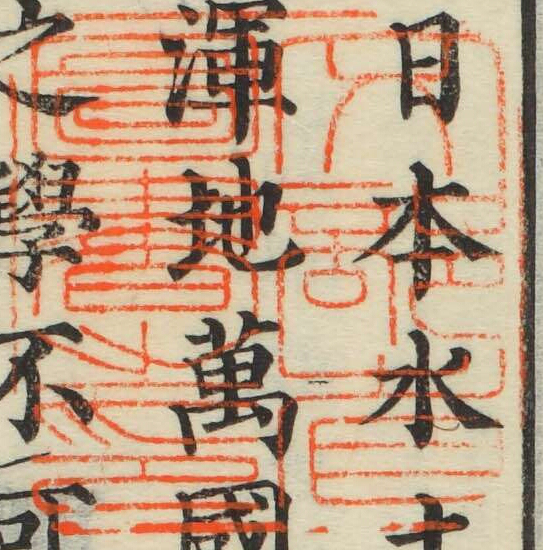 日本水土
渾地萬國
之學不可